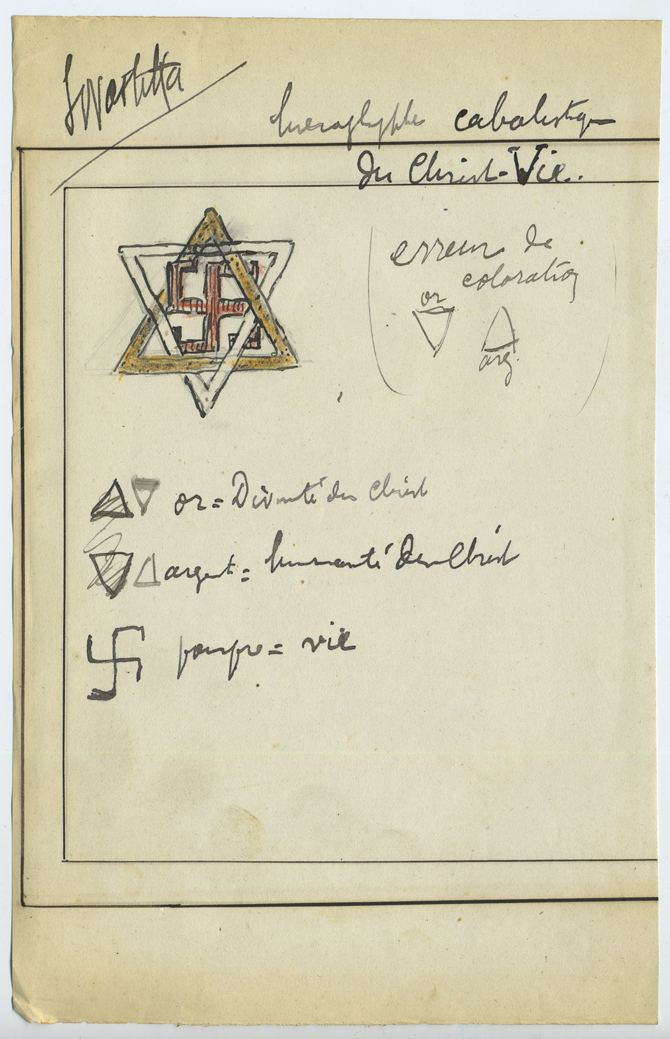 Swastika
hieroglyphe cabalistique
du Christ-Vie.
erreur de
coloration
or
arg.
or = Divinité du Christ
argent = humanité du Christ
pourpre = vie